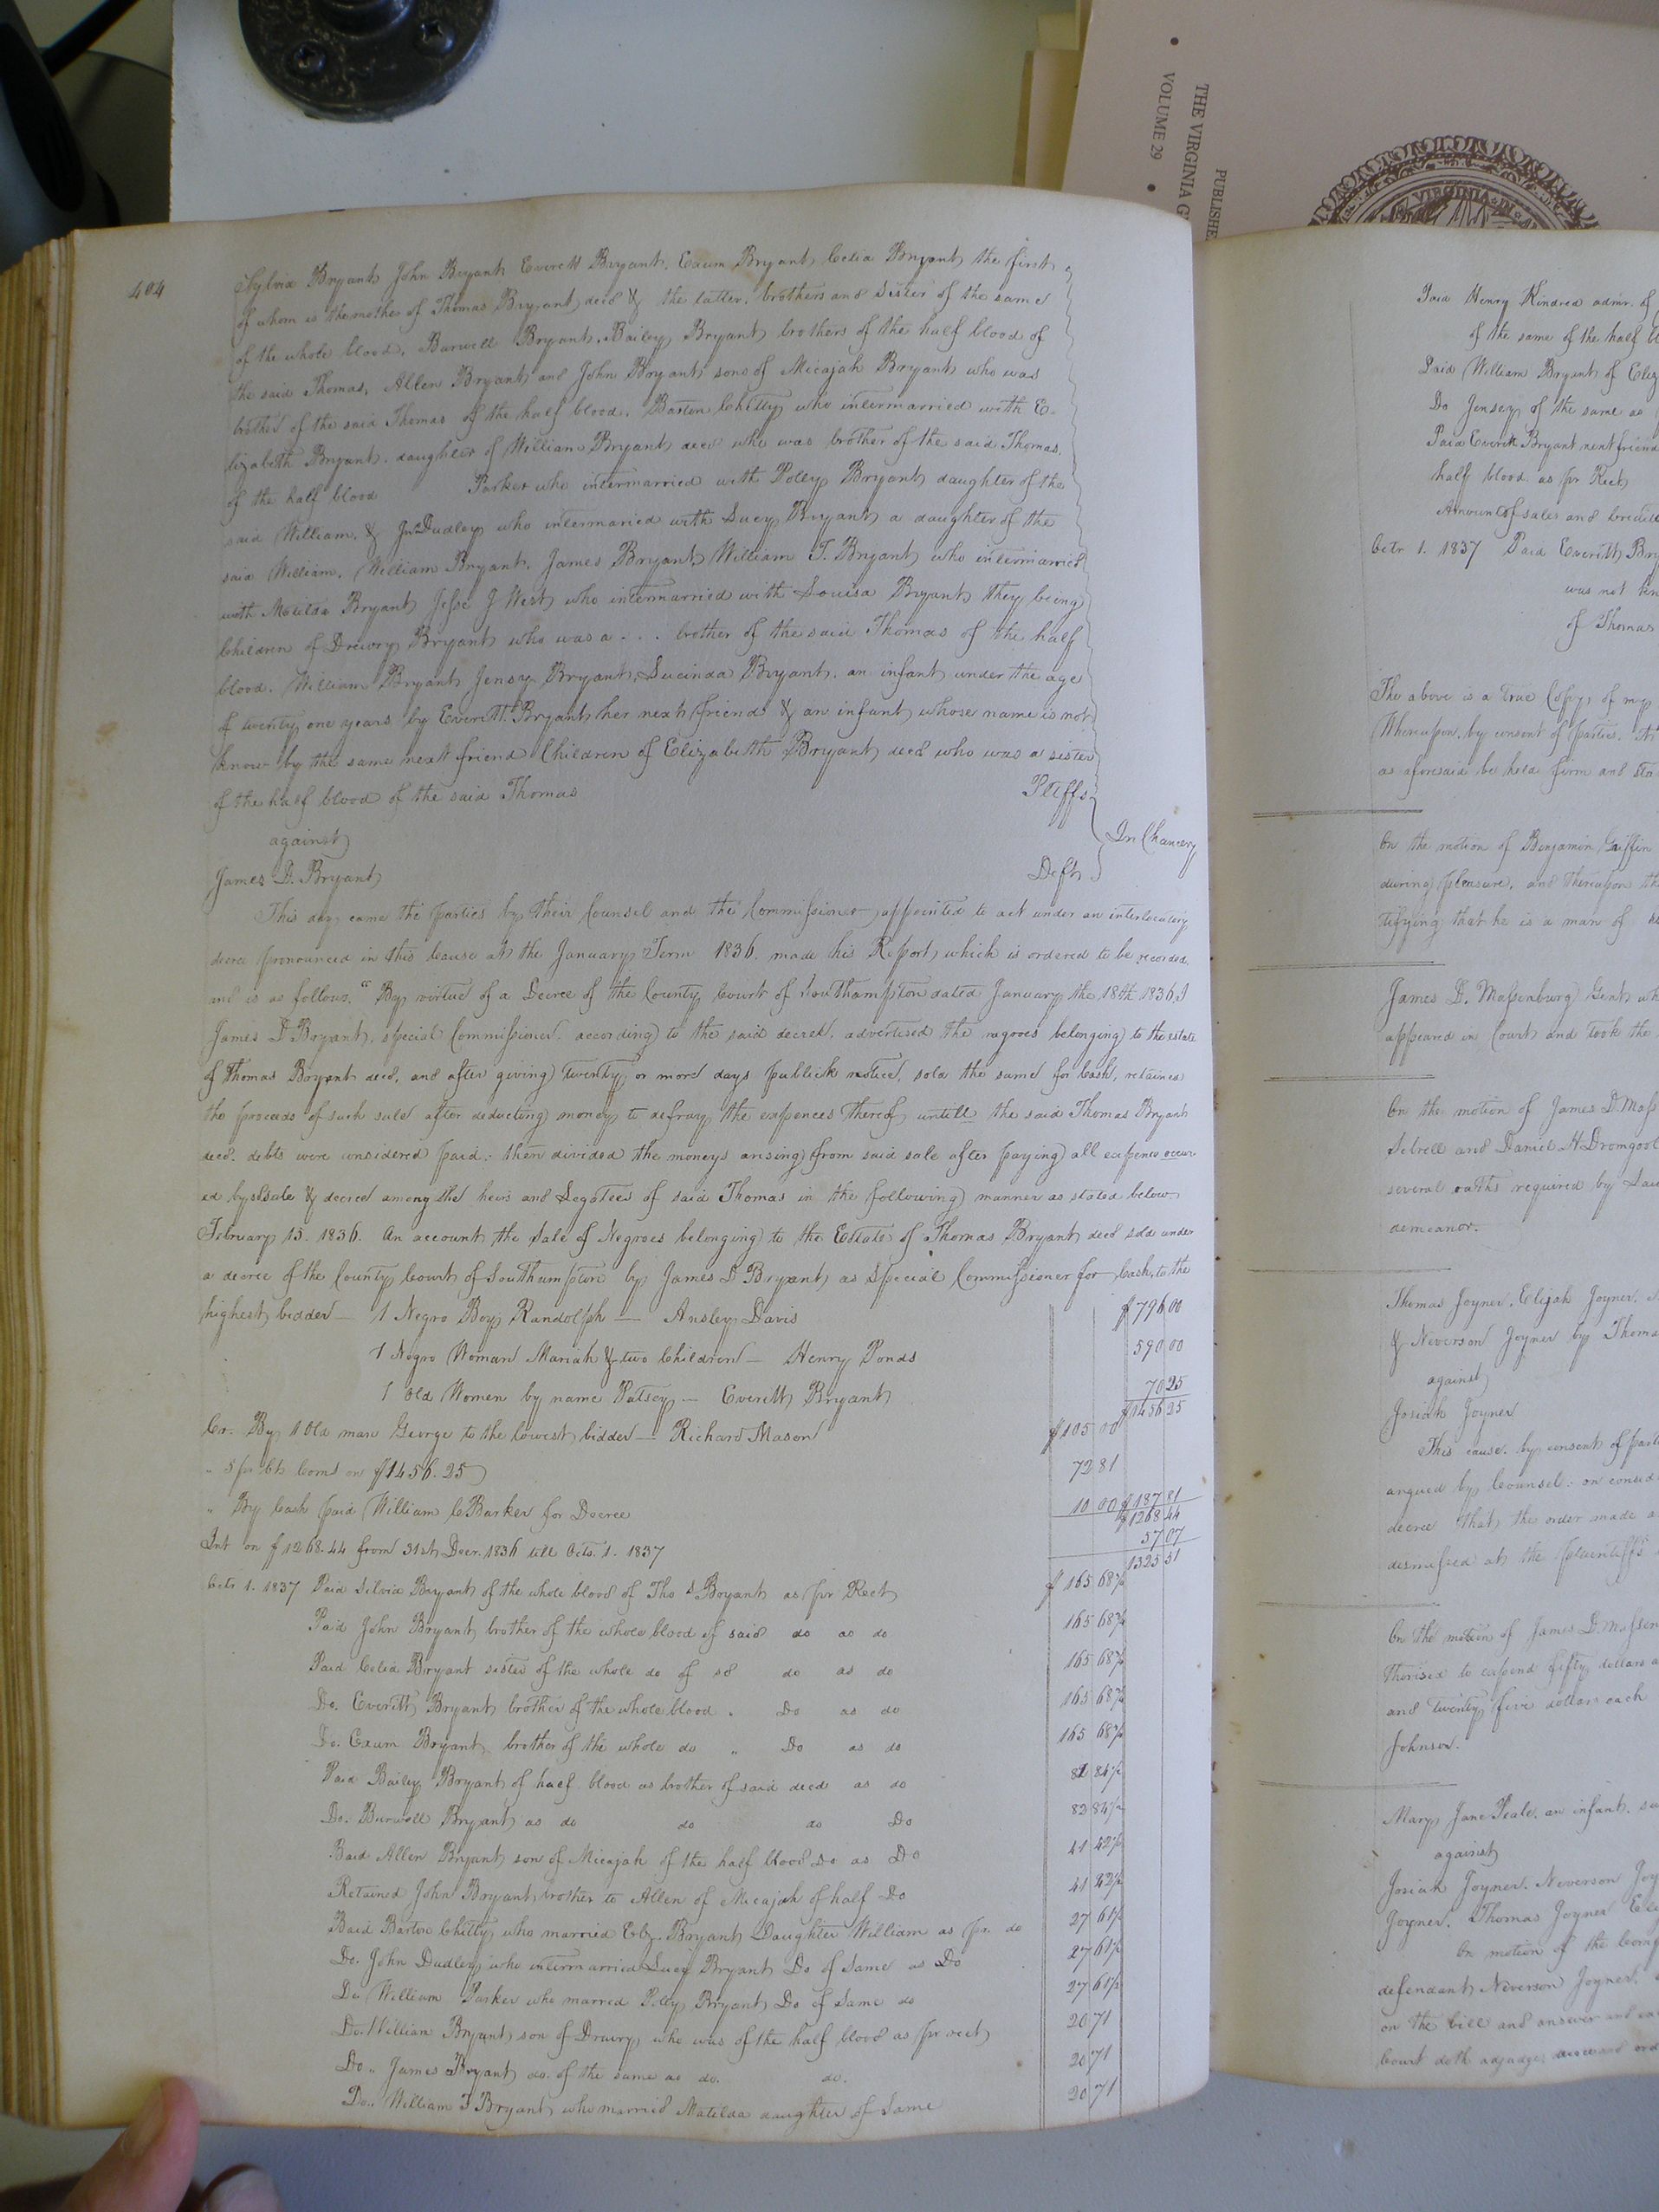 PUBLISHE
THE VIRGINIA G
• VOLUME 29 •
VIRGINIA IN
404
Sylvia Bryant John Bryant Everett Bryant, Exum Bryant, Celia Bryant the first
of whom is the mother of Thomas Bryant decd & the latter, brothers and Sister of the same
of the whole blood, Burwell Bryant, Bailey Bryant brothers of the half blood of
the said Thomas, Allen Bryant and John Bryant sons of Micajah Bryant who was
brother of the said Thomas of the half blood, Barton Chitty who intermarried with E-
lizabeth Bryant, daughter of William Bryant decd who was brother of the said Thomas,
of the half blood Parker who intermarried with Polly Bryant daughter of the
said William, & Jno Dudley who intermaried with Lucy Bryant a daughter of the
said William, William Bryant, James Bryant William T. Bryant who intermarried
with Matilda Bryant Jesse J West who intermarried with Louisa Bryant they being
Children of Drewry Bryant who was a . . . brother of the said Thomas of the half
blood. William Bryant Jensy Bryant, Lucinda Bryant, an infant under the age
of twenty one years by Everett Bryant her next friend & an infant whose name is not
know by the same next friend Children of Elizabeth Bryant decd who was a sister
of the half blood of the said Thomas Pltffs
against In Chancery
James D. Bryant Deft
This day came the parties by their Counsel and the Commissioner appointed to act under an interlocutory
decree pronounced in this Cause at the January Term 1836. made his Report, which is ordered to be recorded,
and is as follows, "By virtue of a Decree of the County Court of Southampton dated January the 18th 1836 I
James D Bryant, special Commissioner according to the said decree, advertised the negroes belonging to the estate
of Thomas Bryant decd, and after giving twenty or more days publick notice, sold the same for Cash, retained
the proceeds of such sale after deducting money to defray the expences thereof untill the said Thomas Bryant
decd. debts were considered paid: then divided the moneys arising from said sale after paying all expence occur
ed by sd sale & decree among the heirs and Legatees of said Thomas in the following manner as stated below
February 15. 1836. An account the Sale of Negroes belonging to the Estate of Thomas Bryant decd sold under
a decree of the County Court of Southampton by James D Bryant as Special Commissioner for Cash, to the
highest bidder — 1 Negro Boy Randolph — Ansley Davis $796 00
1 Negro Woman Mariah & two Children — Henry Ponds 590 00
1 Old Women by name Patsey — Everett Bryant 70 25
$1456 25
Cr. By 1 Old man George to the lowest bidder — Richard Mason $105 00
" 5 pr Ct Coms on $1456.25 72 81
" By Cash paid William C Barker for Decree 10 00 $187 81
$1268 44
Int on $1268.44 from 31st Decr. 1836 till Octo. 1. 1837 57 07
1325 51
Octr 1. 1837 Paid Silvia Bryant of the whole blood of Tho S Bryant as pr Rect $165 68¾
Paid John Bryant brother of the whole blood of said do as do 165 68¾
Paid Celia Bryant sister of the whole do of sd do as do 165 68¾
Do. Everett Bryant brother of the whole blood . Do as do 165 68¾
Do. Exum Bryant brother of the whole do " Do as do 165 68¾
Paid Bailey Bryant of half blood as brother of said decd as do 82 84½
Do. Burwell Bryant as do do do Do 82 84½
Paid Allen Bryant son of Micajah of the half blood Do as Do 41 42½
Retained John Bryant brother to Allen of Micajah of half Do 41 42½
Paid Barton Chitty who married Elz. Bryant Daughter William as pr. do 27 61½
Do. John Dudley who intermarried Lucy Bryant Do of Same as Do 27 61½
Do William Parker who married Polly Bryant Do of Same do 27 61½
Do. William Bryant son of Drewry who was of the half blood as pr rect 20 71
Do.. James Bryant do. of the same as do. do. 20 71
Do.. William T Bryant who married Matilda daughter of Same 20 71
Paid Henry Kindred admr. of
of the same of the half bl
Paid William Bryant of Eliz
Do Jensey of the same as
Paid Everett Bryant next friend
half blood as pr Rect
Amount of sales and
Octr 1. 1837 Paid Everitt Bry
was not kn
of Thomas
The above is a true Copy of my
Whereupon, by consent of parties,
as aforesaid be held firm and sta
On the motion of Benjamin Griffin
during pleasure, and thereupon th
tifying that he is a man of
James D. Massenburg Gent wh
appeared in Court and took the
On the motion of James D. Mass
Sebrell and Daniel H. Dromgool
several oaths required by Law
demeanor.
Thomas Joyner, Elijah Joyner,
& Neverson Joyner by Thoma
against
Josiah Joyner
This cause, by consent of part
argued by Counsel: on consid
decree that the order made
dismissed at the plaintiffs
On the motion of James D. Massen
thorised to expend fifty dollars a
and twenty five dollars each
Johnson.
Mary Jane Peale, an infant,
against
Josiah Joyner, Neverson Joy
Joyner, Thomas Joyner Eli
On motion of the Comp
defendant Neverson Joyner,
on the bill and answer and
Court doth adjudge, decree and ord